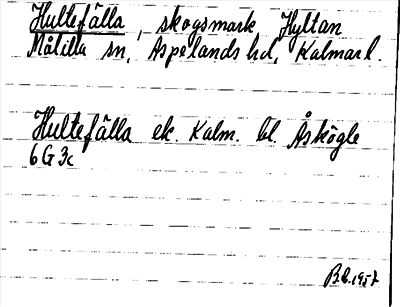 Hultefälla, skogsmark Hyltan
Målilla sn, Aspelands hd, Kalmar l.
Hultefälla ek. Kalm. bl. Åskögle
6G 3c